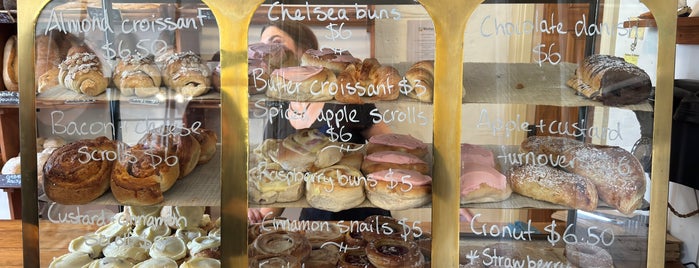 Almond croissant
$6.50
Bacon + cheese
scrolls $6
Custard + cinnamon
Chelsea buns
$6
Butter croissant $5
Spicey apple scrolls
$6
Raspberry buns $5
Cinnamon snails $5
Chocolate danish
$6
Apple + custard
turnover $6
Cronut $6.50
* Strawberry